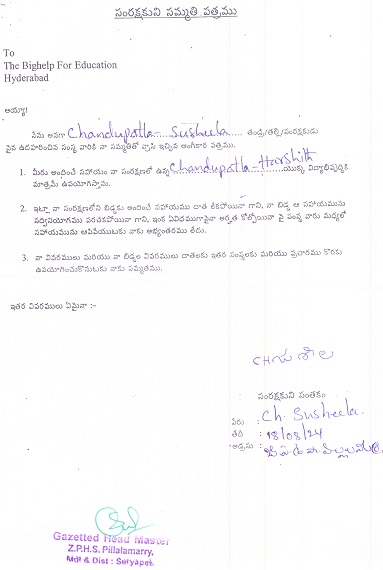 సంరక్షకుని సమ్మతి పత్రము
To
The Bighelp For Education
Hyderabad
అయ్యా!
నేను అనగా Chandupatla Susheela తండ్రి/తల్లి/సంరక్షకుడు
పైన ఉదహరించిన సంస్థ వారికి నా సమ్మతితో వ్రాసి ఇచ్చిన అంగీకార పత్రము.
1. మీరు అందించే సహాయం నా సంరక్షణలో ఉన్న Chandupatla Harshith యొక్క విద్యాభివృద్ధికి
మాత్రమే ఉపయోగిస్తాను.
2. ఇట్లా నా సంరక్షణలోని బిడ్డకు అందించే సహాయము దాత లేకపోయినా గాని, నా బిడ్డ ఆ సహాయమును
సద్వినియోగము పరచకపోయినా గాని, ఇంక ఏవిధముగానైనా అర్హత కోల్పోయినా పై సంస్థ వారు మధ్యలో
సహాయమును ఆపివేయుటకు నాకు అభ్యంతరము లేదు.
3. నా వివరములు మరియు నా బిడ్డల వివరములు దాతలకు ఇతర సంస్థలకు మరియు ప్రచారము కొరకు
ఉపయోగించుకొనుటకు నాకు సమ్మతము.
ఇతర వివరములు ఏమైనా :-
CH సుశీల
సంరక్షకుని సంతకం
పేరు : Ch. Susheela
తేది : 18/08/24
అడ్రసు :
Gazetted Head Master
Z.P.H.S. Pillalamarry,
Mdl & Dist : Suryapet.